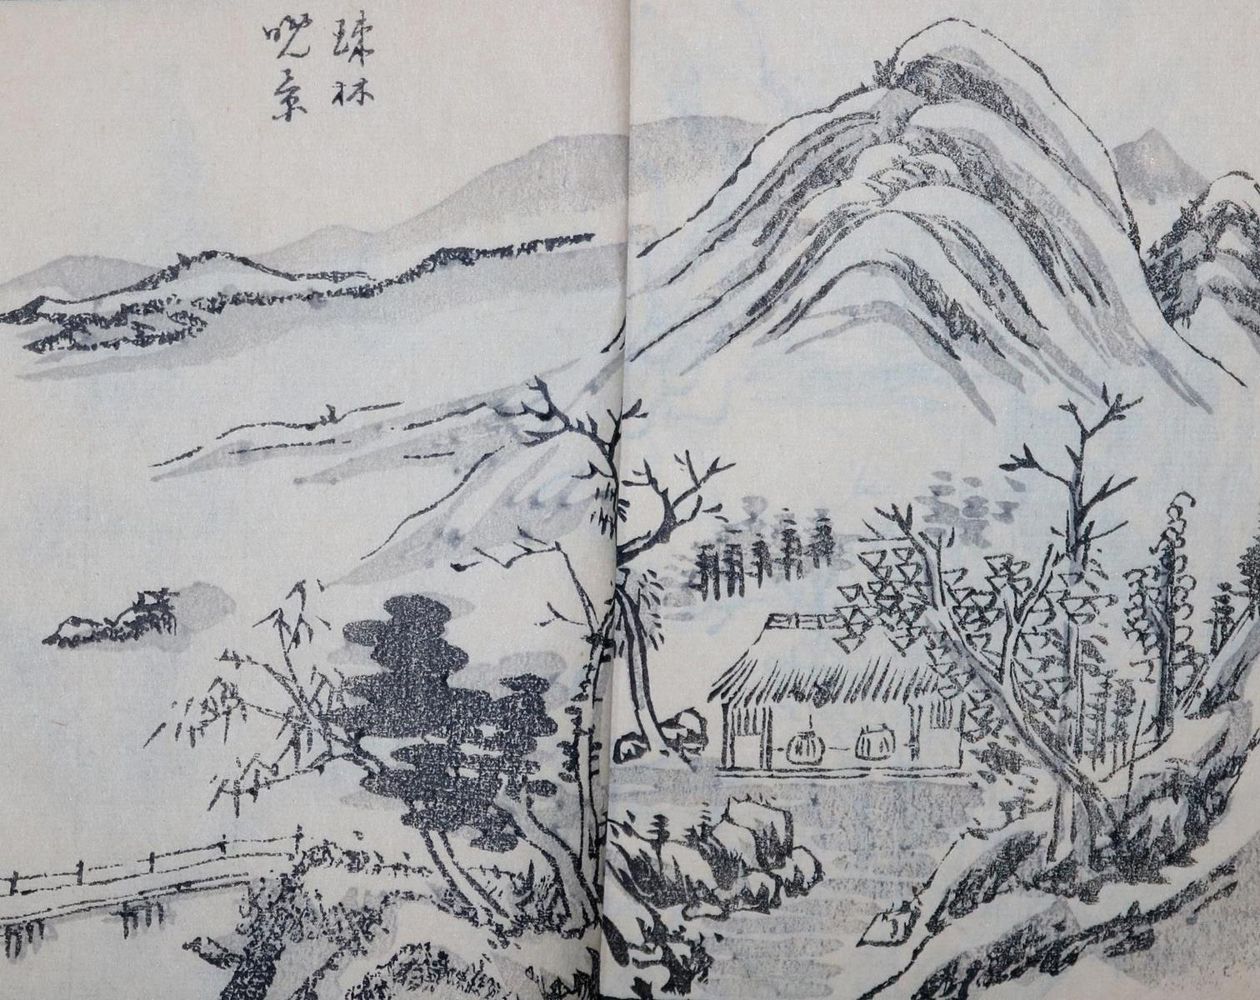 疎林
晩景